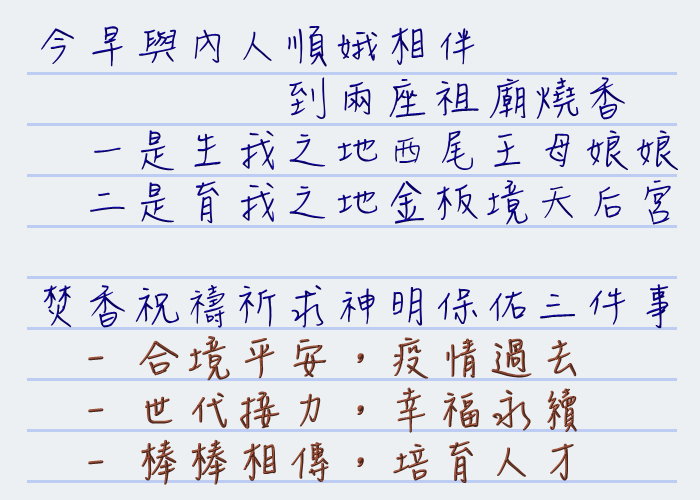 今早與內人順娥相伴
到兩座祖廟燒香
一是生我之地西尾王母娘娘
二是育我之地金板境天后宮
焚香祝禱祈求神明保佑三件事
- 合境平安，疫情過去
- 世代接力，幸福永續
- 棒棒相傳，培育人才